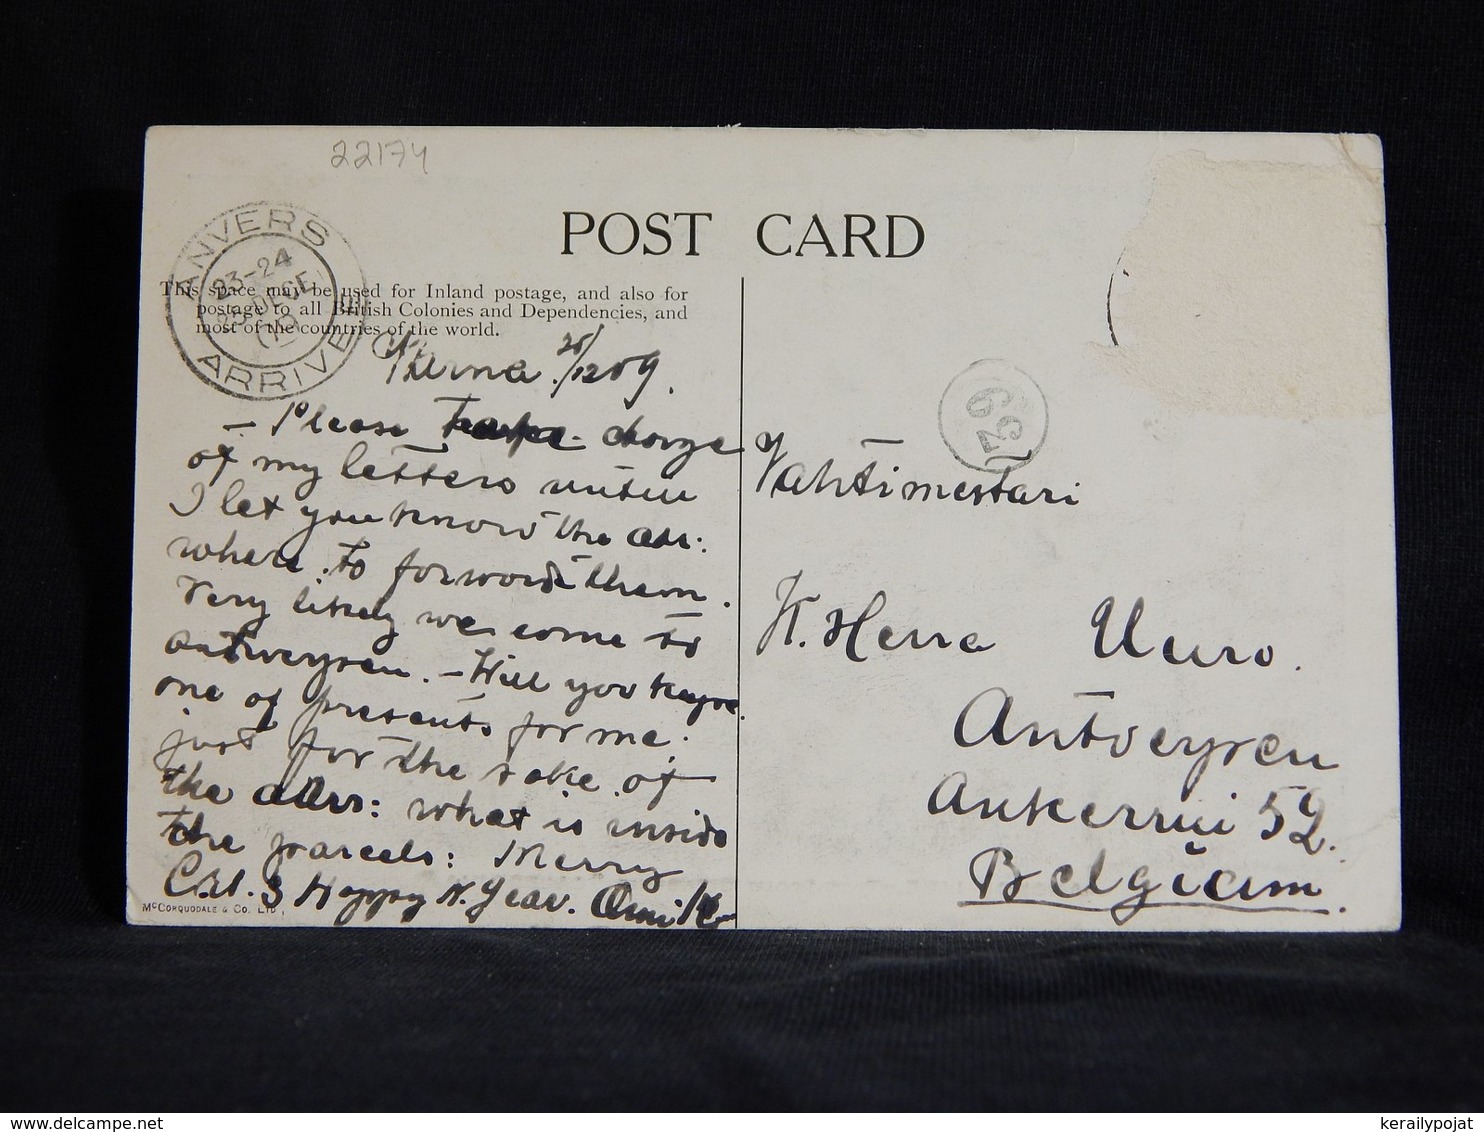 22174
POST CARD
ANVERS
23-24
DECE
ARRIVEE
This space may be used for Inland postage, and also for
postage to all British Colonies and Dependencies, and
most of the countries of the world.
/12 09.
69
3
- Please charge
of my letters
I let you know the
where to forward them.
Very likely we come to
antweypen. - Will you
one of presents for me:
just for the sake of
the what is inside
the parcels: Merry
Happy N. Year.
McCORQUODALE & CO. LTD
Vahtimestari
K. Herra Uuro.
Antveypen
Ankerrui 52.
Belgium.
kerailypojat